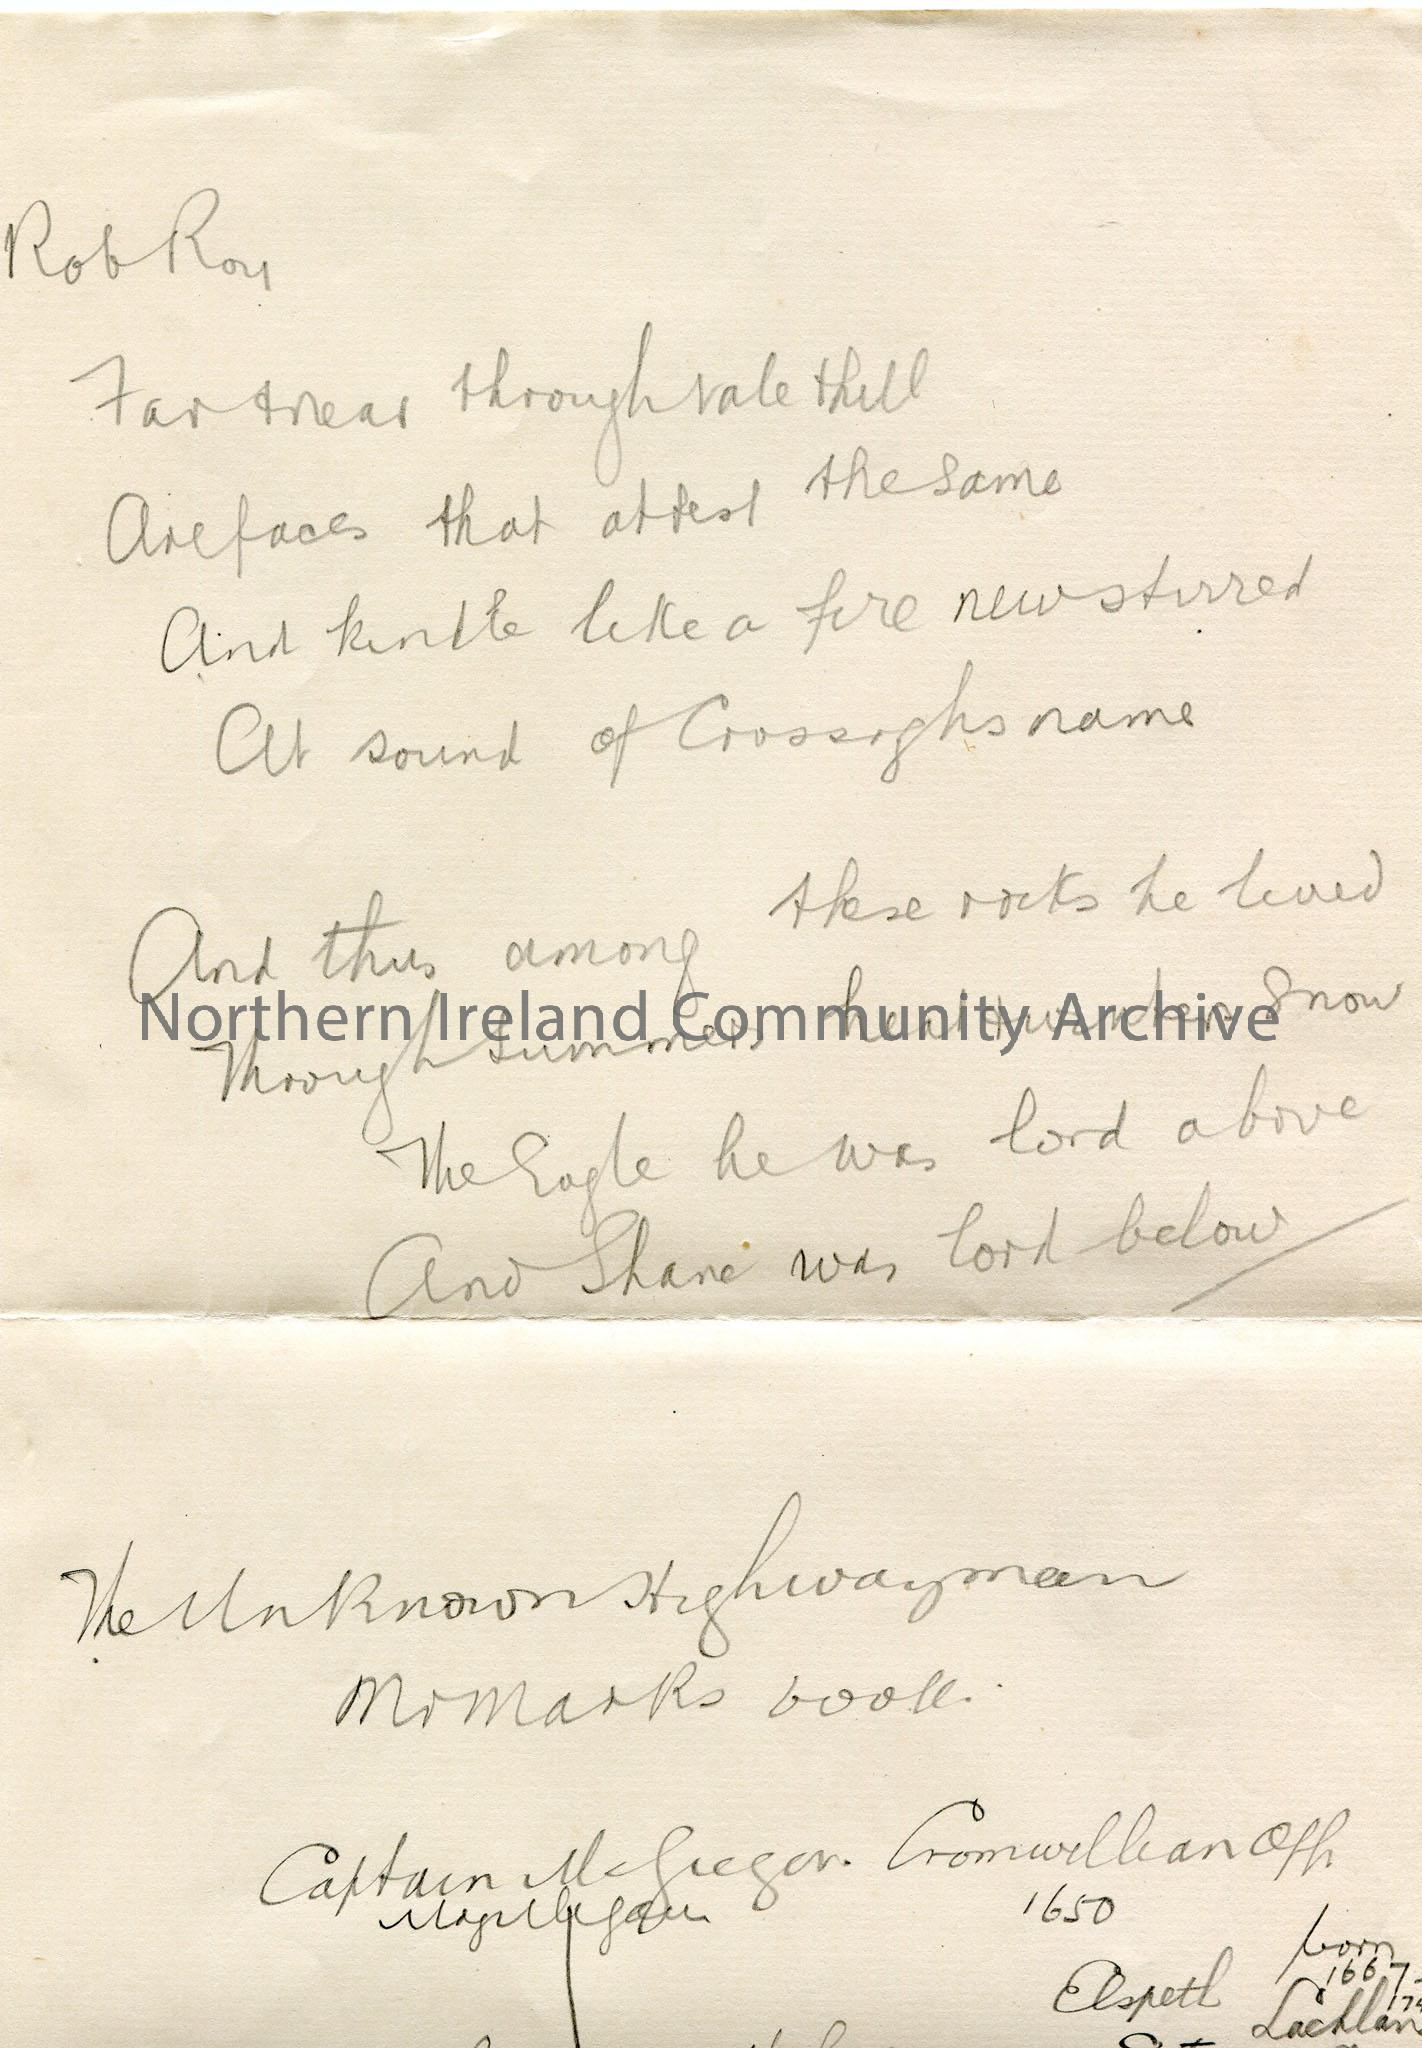 Rob Roy
Far & near through vale & hill
Are faces that attest the same
And kindle like a fire new stirred
At sound of Crossighs name
And thus among these rocks he lived
Through summers heat & winters snow
The Eagle he was lord above
And Shane was lord below
The Unknown Highwayman
Mr Marks book.
Captain McGregor. Cromwellian Offr
Magilligan 1650
born
1667-
Elspeth Lachlan
Northern Ireland Community Archive